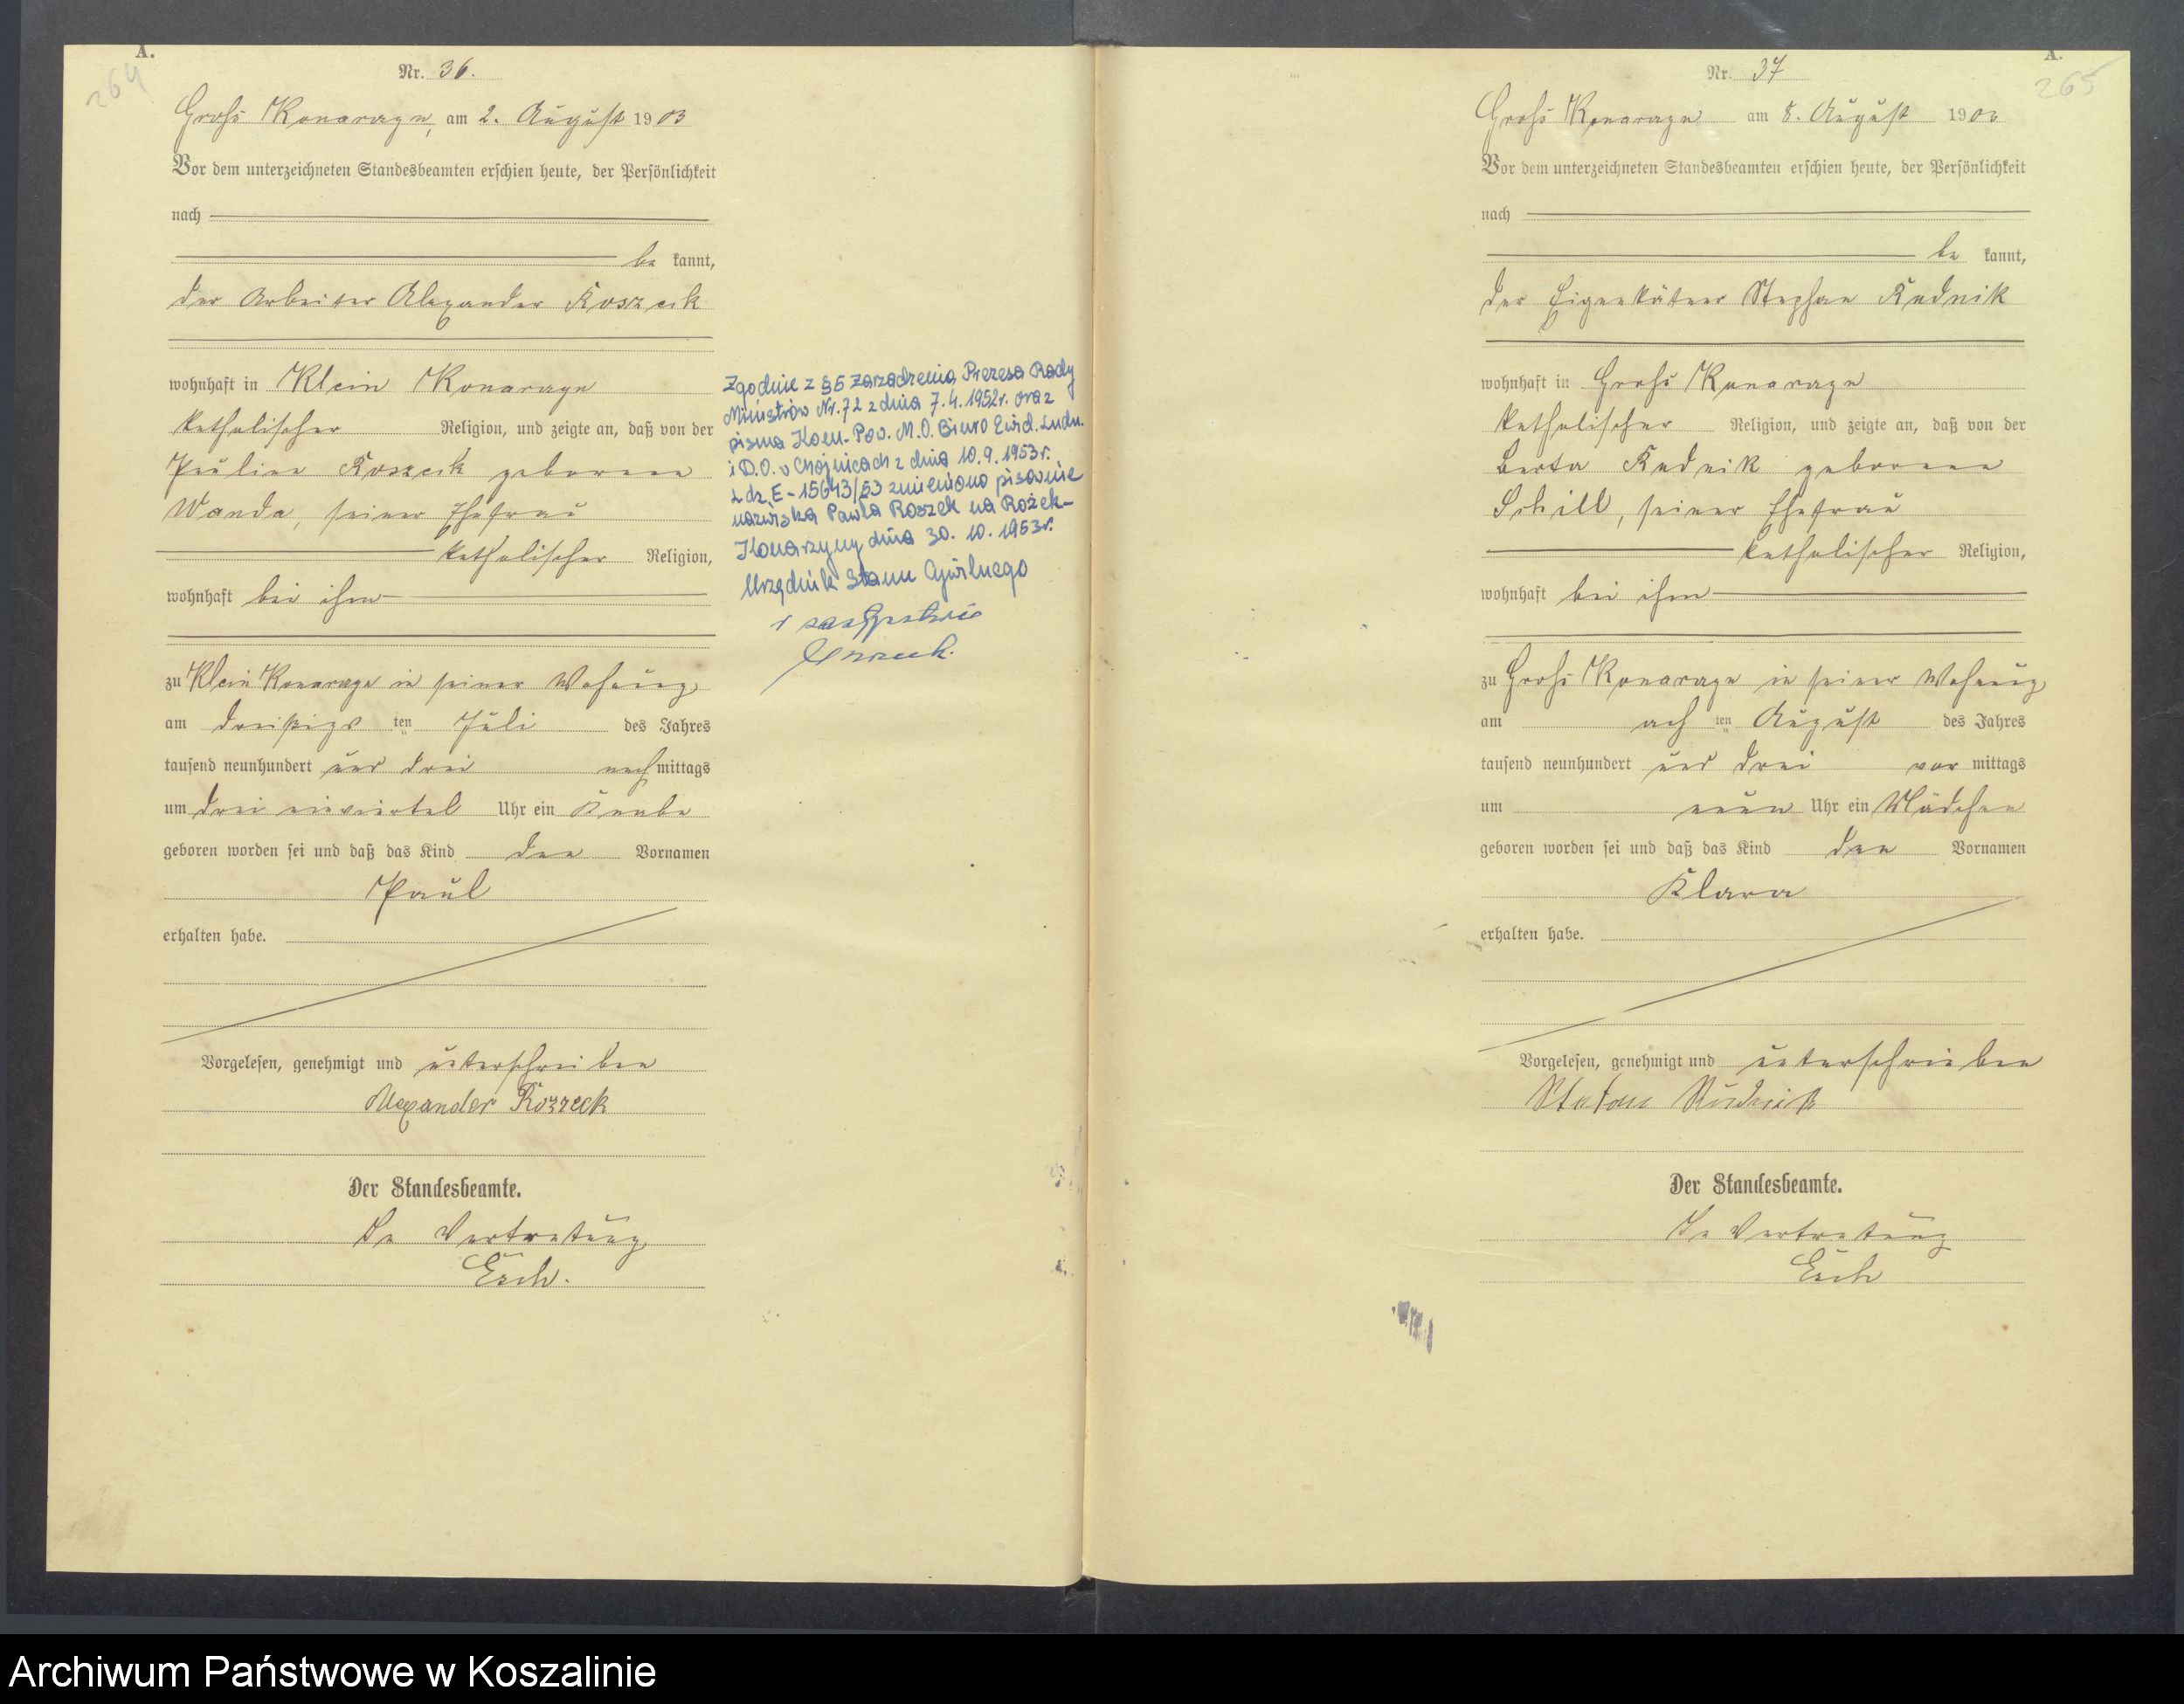 A.
264
Nr. 36.
Groß Konarczyn, am 2. August 1903
Vor dem unterzeichneten Standesbeamten erschien heute, der Persönlichkeit
nach
be kannt,
der Arbeiter Alexander Roszek
wohnhaft in Klein Konarczyn
katholischer Religion, und zeigte an, daß von der
Pauline Roszek geborene
Wanda, seiner Ehefrau
katholischer Religion,
wohnhaft bei ihm
zu Klein Konarczyn in seiner Wohnung
am dreißigs ten Juli des Jahres
tausend neunhundert und drei nach mittags
um drei einviertel Uhr ein Knabe
geboren worden sei und daß das Kind den Vornamen
Paul
erhalten habe.
Vorgelesen, genehmigt und unterschrieben
Alexander Rozzeck
Der Standesbeamte.
In Vertretung
Esch.
Zgodnie z §5 Zarządzenia Prezesa Rady
Ministrów Nr. 72 z dnia 7.4.1952r. oraz
pisma Kom. Pow. M.O. Biuro Ewid. Ludn.
i D.O. w Chojnicach z dnia 10.9.1953r.
L.dz. E-15643/53 zmieniono pisownię
nazwiska Pawła Roszek na Rożek-
Konarzyny dnia 30.10.1953r.
Urzędnik Stanu Cywilnego
A.
265
Nr. 37
Groß Konarczyn am 8. August 1903
Vor dem unterzeichneten Standesbeamten erschien heute, der Persönlichkeit
nach
be kannt,
der Eigenkätner Stephan Rudnik
wohnhaft in Groß Konarczyn
katholischer Religion, und zeigte an, daß von der
Berta Rudnik geborene
Schill, seiner Ehefrau
katholischer Religion,
wohnhaft bei ihm
zu Groß Konarczyn in seiner Wohnung
am ach ten August des Jahres
tausend neunhundert und drei vor mittags
um neun Uhr ein Mädchen
geboren worden sei und daß das Kind den Vornamen
Klara
erhalten habe.
Vorgelesen, genehmigt und unterschrieben
Stefan Rudnik
Der Standesbeamte.
In Vertretung
Esch
Archiwum Państwowe w Koszalinie